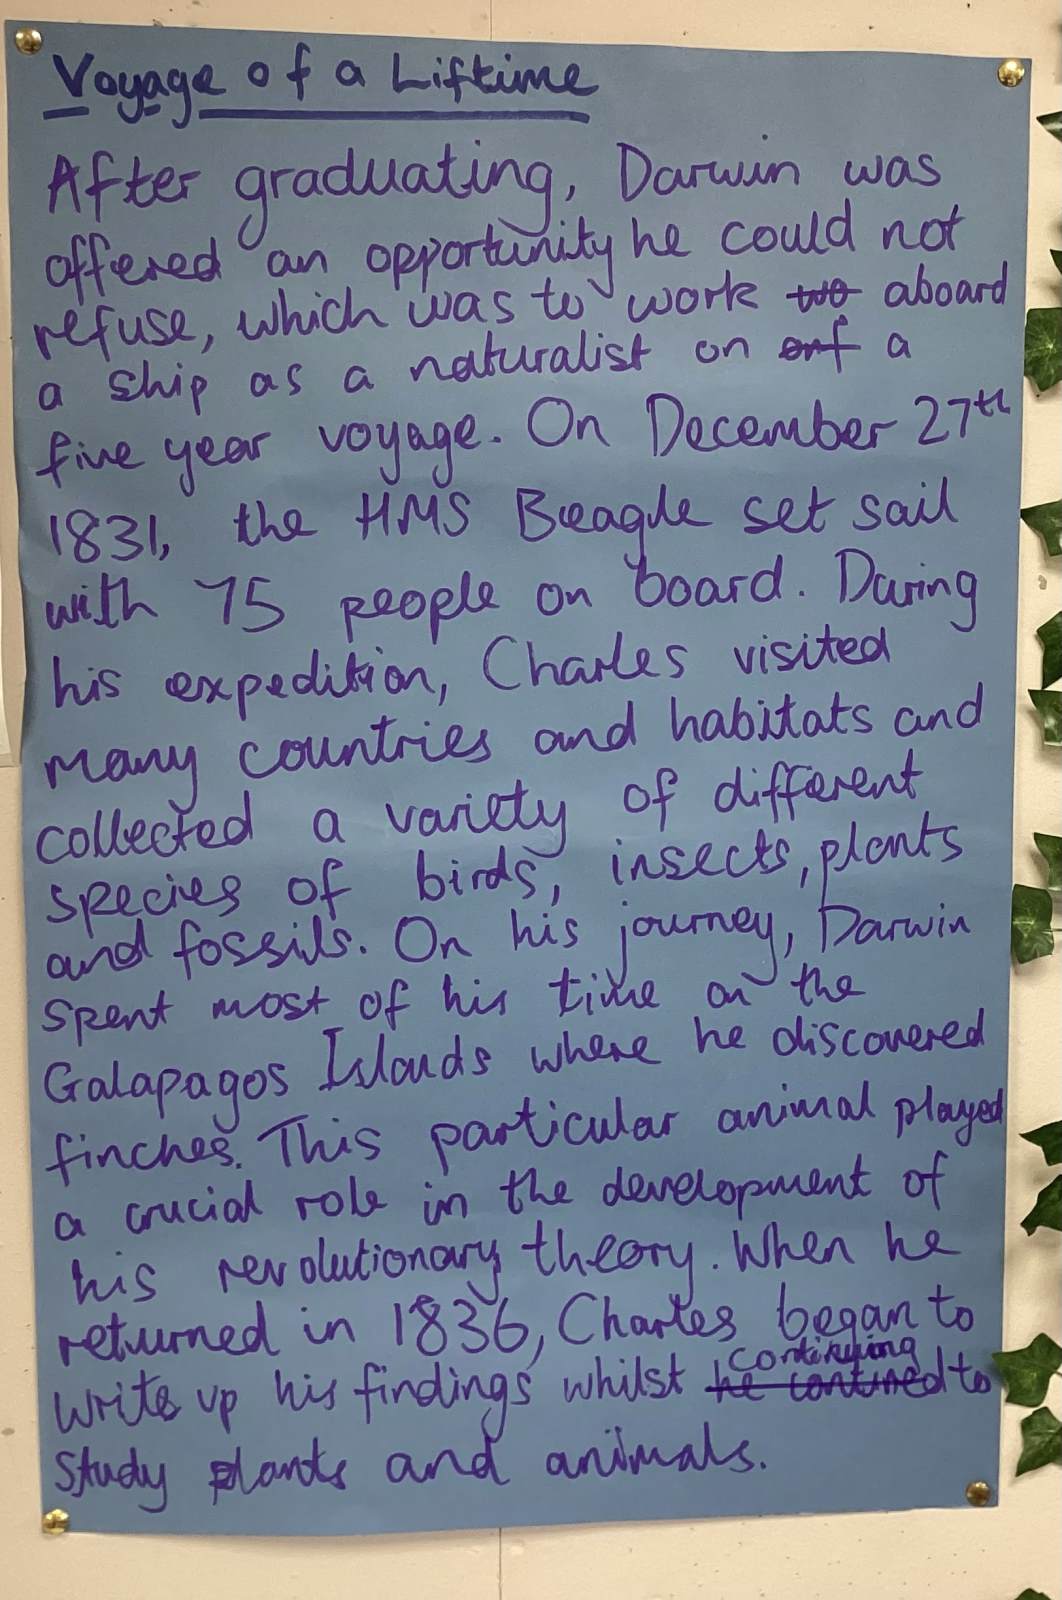 Voyage of a Liftime
After graduating, Darwin was
offered an opportunity he could not
refuse, which was to work wo aboard
a ship as a naturalist on onf a
five year voyage. On December 27th
1831, the HMS Beagle set sail
with 75 people on board. During
his expedition, Charles visited
many countries and habitats and
collected a variety of different
species of birds, insects, plants
and fossils. On his journey, Darwin
spent most of his time on the
Galapagos Islands where he discovered
finches. This particular animal played
a crucial role in the development of
his revolutionary theory. When he
returned in 1836, Charles began to
continuing
write up his findings whilst he contined to
study plants and animals.